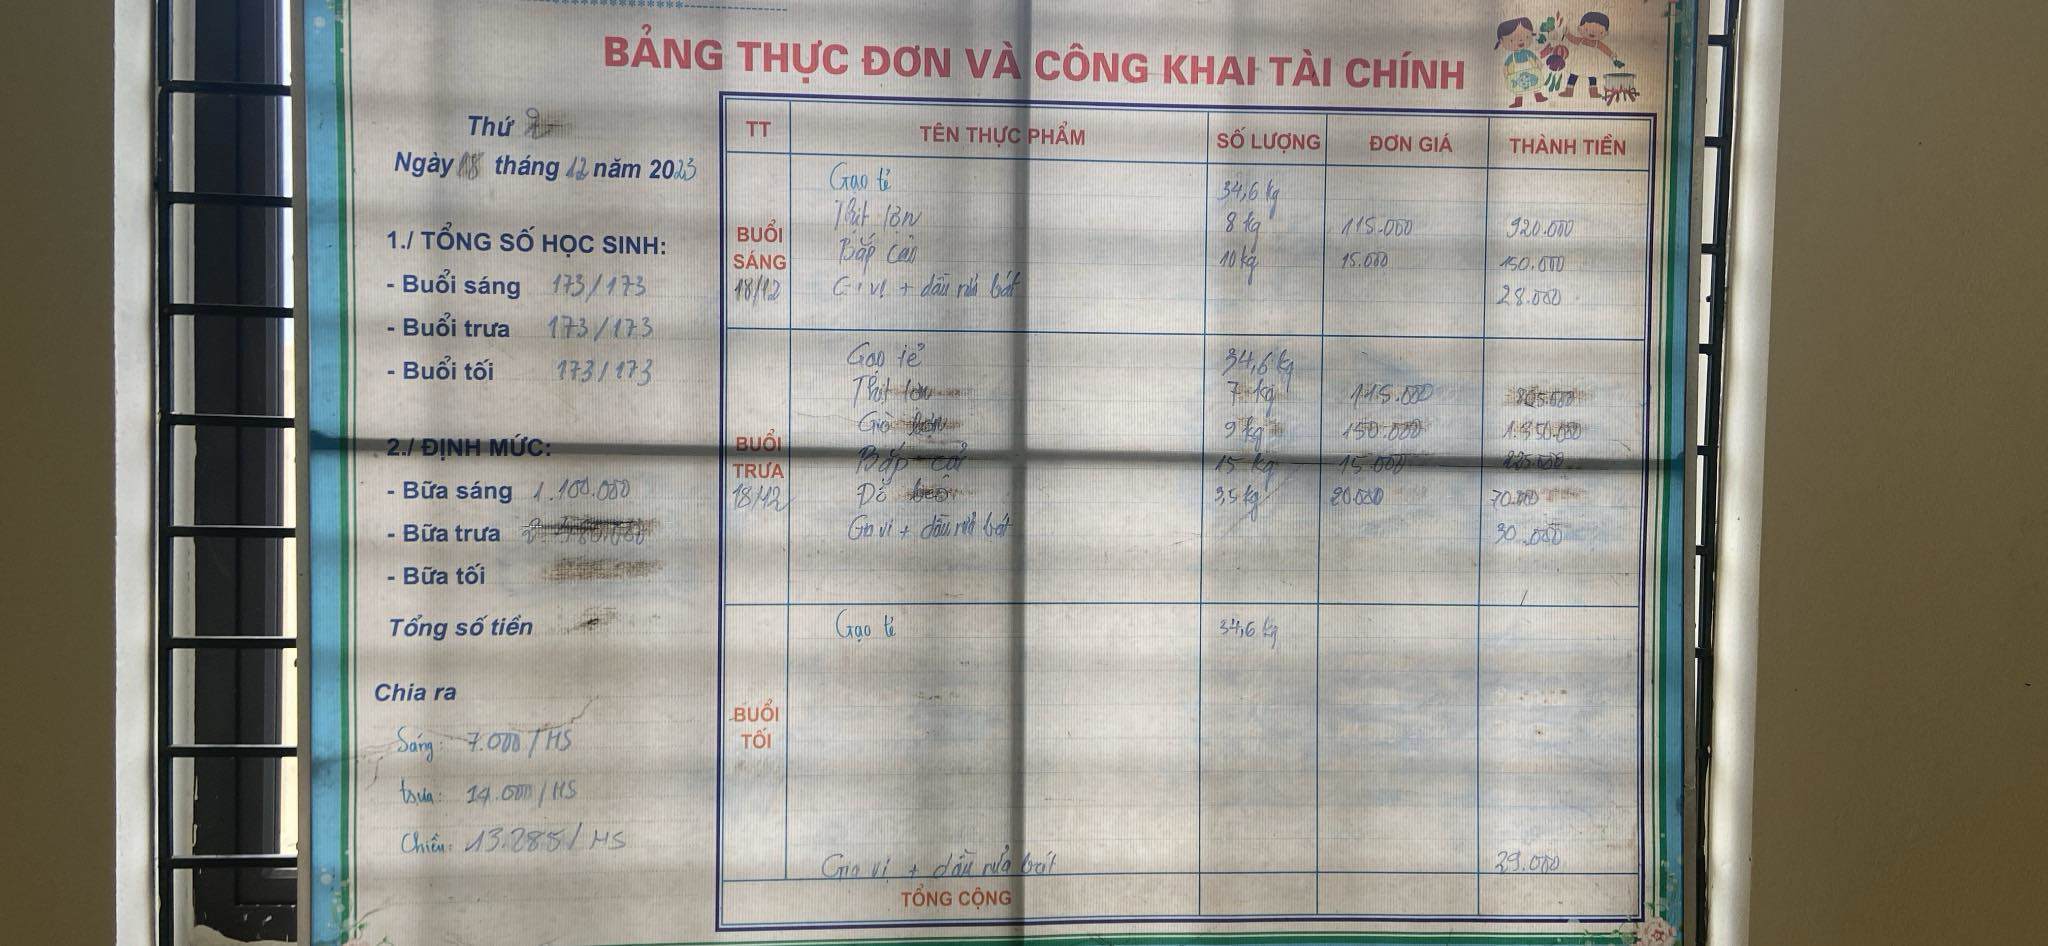 BẢNG THỰC ĐƠN VÀ CÔNG KHAI TÀI CHÍNH
Thứ 2
Ngày 18 tháng 12 năm 2023
1./ TỔNG SỐ HỌC SINH:
- Buổi sáng 173/173
- Buổi trưa 173/173
- Buổi tối 173/173
2./ ĐỊNH MỨC:
- Bữa sáng 1.100.000
- Bữa trưa
- Bữa tối
Tổng số tiền
Chia ra
Sáng: 7.000/HS
trưa: 14.000/HS
Chiều: 13.285/HS
TT TÊN THỰC PHẨM SỐ LƯỢNG ĐƠN GIÁ THÀNH TIỀN
BUỔI SÁNG 18/12
Gạo tẻ 34,6 kg
Thịt lợn 8 kg 115.000 920.000
Bắp cải 10 kg 15.000 150.000
Gia vị + dầu rửa bát 28.000
BUỔI TRƯA 18/12
Gạo tẻ 34,6 kg
Thịt lợn 7 kg 115.000 805.000
Giò 9 kg 150.000 1.350.000
Bắp cải 15 kg 15.000 225.000
3,5 kg 20.000 70.000
Gia vị + dầu rửa bát 30.000
BUỔI TỐI
Gạo tẻ 34,6 kg
Gia vị + dầu rửa bát 29.000
TỔNG CỘNG